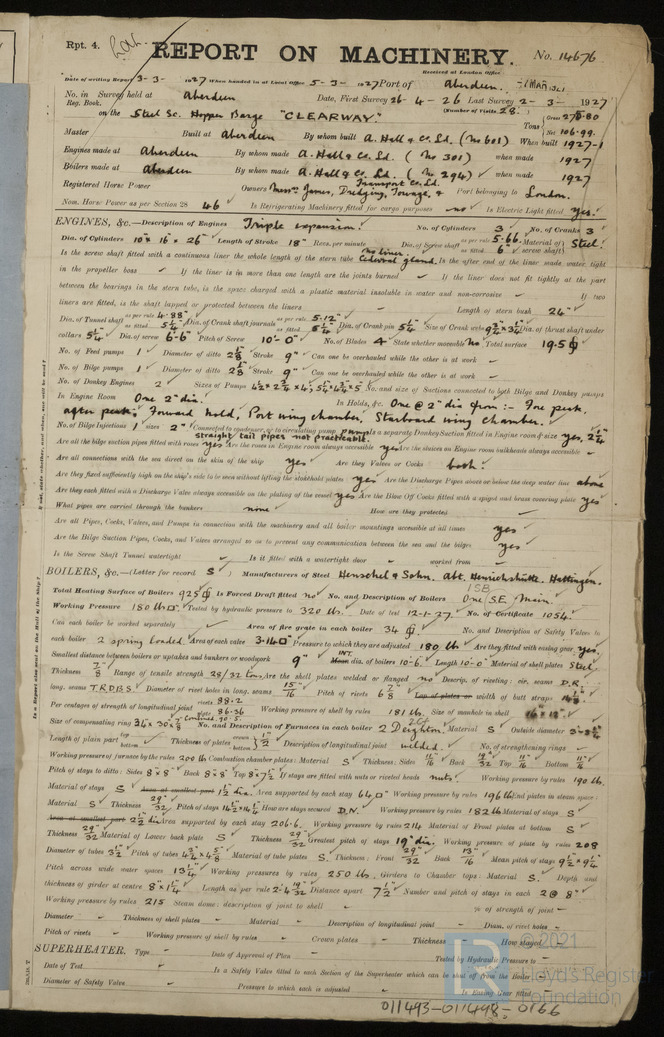 Rpt. 4.
REPORT ON MACHINERY.
No. 14676
Received at London Office
Date of writing Report 3-3- 1927 When handed in at Local Office 5-3- 1927 Port of Aberdeen.
No. in Survey held at Aberdeen Date, First Survey 26-4-26 Last Survey 2-3- 1927
Reg. Book. (Number of Visits 28.)
on the Steel Sc. Hopper Barge "CLEARWAY." Tons Gross 278.80 Net 106.99.
Master Built at Aberdeen By whom built A. Hall & Co. Ld. (No 601) When built 1927-1
Engines made at Aberdeen By whom made A. Hall & Co. Ld. (No 301) when made 1927
Boilers made at Aberdeen By whom made A. Hall & Co. Ld. (No 294) when made 1927
Registered Horse Power Owners Messrs James, Dredging, Towage, & Transport Co. Ld. Port belonging to London.
Nom. Horse Power as per Section 28 46 Is Refrigerating Machinery fitted for cargo purposes no Is Electric Light fitted yes.
ENGINES, &c.—Description of Engines Triple expansion. No. of Cylinders 3 No. of Cranks 3
Dia. of Cylinders 10" 16" 26" Length of Stroke 18" Revs. per minute Dia. of Screw shaft as per rule 5.66 as fitted 6" Material of screw shaft Steel
Is the screw shaft fitted with a continuous liner the whole length of the stern tube no liner. Cederval gland. Is the after end of the liner made water tight
in the propeller boss If the liner is in more than one length are the joints burned If the liner does not fit tightly at the part
between the bearings in the stern tube, is the space charged with a plastic material insoluble in water and non-corrosive If two
liners are fitted, is the shaft lapped or protected between the liners Length of stern bush 24"
Dia. of Tunnel shaft as per rule 4.88" as fitted 5¼" Dia. of Crank shaft journals as per rule 5.12" as fitted 5¼" Dia. of Crank pin 5¼" Size of Crank webs 9¾"x3¼" Dia. of thrust shaft under
collars 5¼" Dia. of screw 6'-6" Pitch of Screw 10'-0" No. of Blades 4 State whether moveable no Total surface 19.5
No. of Feed pumps 1 Diameter of ditto 2⅛" Stroke 9" Can one be overhauled while the other is at work
No. of Bilge pumps 1 Diameter of ditto 2⅛" Stroke 9" Can one be overhauled while the other is at work
No. of Donkey Engines 2 Sizes of Pumps No. and size of Suctions connected to both Bilge and Donkey pumps
In Engine Room One 2" dia. In Holds, &c. One @ 2" dia from:- Fore peak,
after peak, Forward hold, Port wing chamber, Starboard wing chamber.
No. of Bilge Injections 1 sizes 2" Connected to condenser, or to circulating pump pump Is a separate Donkey Suction fitted in Engine room & size yes, 2¼"
straight tail pipes not practicable.
Are all the bilge suction pipes fitted with roses yes Are the roses in Engine room always accessible yes Are the sluices on Engine room bulkheads always accessible
Are all connections with the sea direct on the skin of the ship yes Are they Valves or Cocks both.
Are they fixed sufficiently high on the ship's side to be seen without lifting the stokehold plates yes Are the Discharge Pipes above or below the deep water line above
Are they each fitted with a Discharge Valve always accessible on the plating of the vessel yes Are the Blow Off Cocks fitted with a spigot and brass covering plate yes
What pipes are carried through the bunkers none How are they protected
Are all Pipes, Cocks, Valves, and Pumps in connection with the machinery and all boiler mountings accessible at all times yes
Are the Bilge Suction Pipes, Cocks, and Valves arranged so as to prevent any communication between the sea and the bilges yes
Is the Screw Shaft Tunnel watertight Is it fitted with a watertight door worked from
BOILERS, &c.—(Letter for record S) Manufacturers of Steel Henschel & Sohn. Abt. Henrichshütte. Hattingen.
Total Heating Surface of Boilers 925 Is Forced Draft fitted no No. and Description of Boilers One SE Main.
1SB
Working Pressure 180 lbs Tested by hydraulic pressure to 320 lbs. Date of test 12-1-27 No. of Certificate 1054
Can each boiler be worked separately Area of fire grate in each boiler 34 No. and Description of Safety Valves to
each boiler 2 spring loaded Area of each valve 3.14 Pressure to which they are adjusted 180 lbs Are they fitted with easing gear yes.
Smallest distance between boilers or uptakes and bunkers or woodwork 9" INT. dia. of boilers 10'-6 Length 10'-0" Material of shell plates Steel
Thickness ⅞" Range of tensile strength 28/32 tons Are the shell plates welded or flanged no Descrip. of riveting: cir. seams D.R.
long. seams T.R.D.B.S Diameter of rivet holes in long. seams 15/16" Pitch of rivets 6⅞" Lap of plates or width of butt straps
Per centages of strength of longitudinal joint rivets 88.2 plate 86.36 Working pressure of shell by rules 181 lb. Size of manhole in shell 16"x12"
Size of compensating ring No. and Description of Furnaces in each boiler 2 Deighton. Material S Outside diameter
Length of plain part top bottom Thickness of plates crown bottom ½" Description of longitudinal joint welded. No. of strengthening rings
Working pressure of furnace by the rules 200 lb Combustion chamber plates: Material S Thickness: Sides 11/16" Back 19/32" Top 11/16" Bottom 11/16"
Pitch of stays to ditto: Sides 8"x8" Back 8"x8" Top 8"x7½" If stays are fitted with nuts or riveted heads nuts. Working pressure by rules 190 lb.
Material of stays S Area at smallest part 1½" dia. Area supported by each stay 64 Working pressure by rules 196 lb End plates in steam space:
Material S Thickness 29/32" Pitch of stays How are stays secured D.N. Working pressure by rules 182 lb Material of stays S
Area at smallest part Area supported by each stay 206.6 Working pressure by rules 214 Material of Front plates at bottom S
Thickness 29/32" Material of Lower back plate S Thickness 29/32" Greatest pitch of stays 19" dia. Working pressure of plate by rules 208
Diameter of tubes 3½" Pitch of tubes 4¾"x4⅝" Material of tube plates S Thickness: Front 29/32" Back 13/16" Mean pitch of stays 9½"x9¼"
Pitch across wide water spaces 13¼" Working pressures by rules 250 lb. Girders to Chamber tops: Material S. Depth and
thickness of girder at centre 8"x1¼" Length as per rule Distance apart 7½" Number and pitch of stays in each 2 @ 8"
Working pressure by rules 215 Steam dome: description of joint to shell % of strength of joint
Diameter Thickness of shell plates Material Description of longitudinal joint Diam. of rivet holes
Pitch of rivets Working pressure of shell by rules Crown plates Thickness How stayed
SUPERHEATER. Type Date of Approval of Plan Tested by Hydraulic Pressure to
Date of Test Is a Safety Valve fitted to each Section of the Superheater which can be shut off from the Boiler
Diameter of Safety Valve Pressure to which each is adjusted Is Easing Gear fitted
© 2021
Lloyd's Register
Foundation
011493-011498-0166